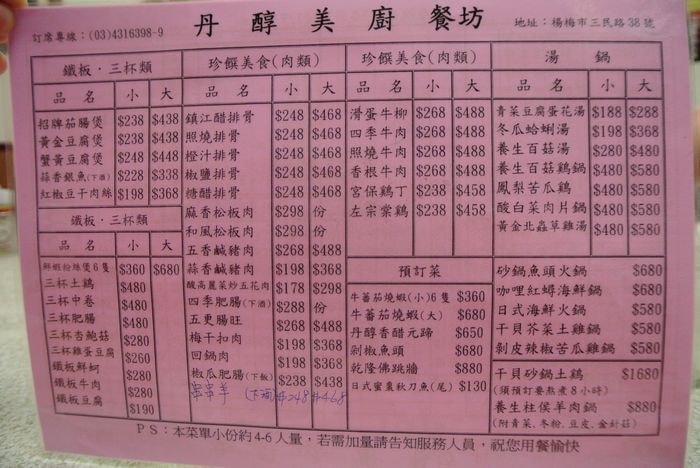 丹醇美廚餐坊
訂席專線：(03)4316398-9
地址：楊梅市三民路38號
鐵板．三杯類
品名 小 大
招牌茄腸煲 $238 $438
黃金豆腐煲 $238 $438
蟹黃豆腐煲 $248 $448
蒜香銀魚(下酒) $228 $338
紅椒豆干肉絲 $198 $368
鐵板．三杯類
品名 小 大
鮮蝦粉絲煲6隻 $360 $680
三杯土鷄 $480
三杯中卷 $480
三杯肥腸 $480
三杯杏鮑菇 $280
三杯雞蛋豆腐 $260
鐵板鮮蚵 $280
鐵板牛肉 $280
鐵板豆腐 $190
珍饌美食(肉類)
品名 小 大
鎮江醋排骨 $248 $468
照燒排骨 $248 $468
橙汁排骨 $248 $468
椒鹽排骨 $248 $468
糖醋排骨 $248 $468
麻香松板肉 $298 份
和風松板肉 $298 份
五香鹹豬肉 $268 $488
蒜香鹹豬肉 $198 $368
酸高麗菜炒五花肉 $178 $298
四季肥腸(下酒) $288 份
五更腸旺 $268 $488
梅干扣肉 $198 $368
回鍋肉 $198 $368
椒瓜肥腸(下飯) $238 $438
$248 $468
珍饌美食(肉類)
品名 小 大
滑蛋牛柳 $268 $488
四季牛肉 $268 $488
照燒牛肉 $268 $488
香根牛肉 $268 $488
宮保鷄丁 $238 $458
左宗棠鷄 $238 $458
預訂菜
牛蕃茄燒蝦(小)6隻 $360
牛蕃茄燒蝦(大) $680
丹醇香醋元蹄 $650
剁椒魚頭 $680
乾隆佛跳牆 $880
日式蜜棗秋刀魚(尾) $130
湯鍋
品名 小 大
青菜豆腐蛋花湯 $188 $288
冬瓜蛤蜊湯 $198 $368
養生百菇湯 $280 $480
養生百菇鷄鍋 $480 $580
鳳梨苦瓜鷄 $480 $580
酸白菜肉片鍋 $480 $580
黃金北蟲草雞湯 $480 $580
砂鍋魚頭火鍋 $680
咖哩紅蟳海鮮鍋 $680
日式海鮮火鍋 $580
干貝芥菜土雞鍋 $580
剝皮辣椒苦瓜雞鍋 $580
干貝砂鍋土鷄 $1680
(須預訂要熬煮8小時)
養生柱侯羊肉鍋 $880
(附青菜、冬粉、豆皮、金針菇)
PS：本菜單小份約4-6人量，若需加量請告知服務人員，祝您用餐愉快